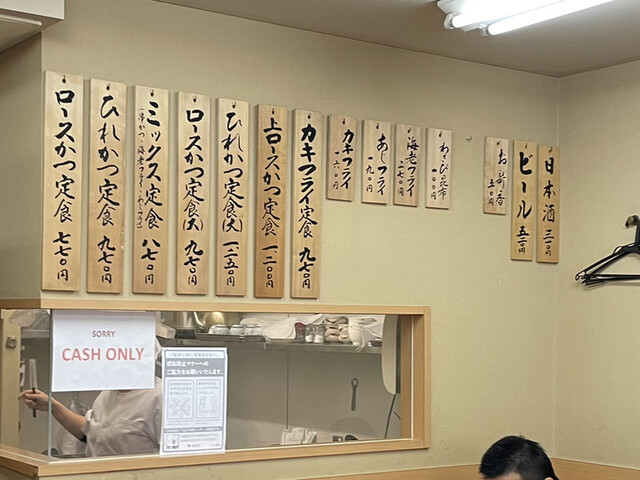 ロースかつ定食 七七〇円
ひれかつ定食 九七〇円
ミックス定食 八七〇円
ロースかつ定食(大) 九七〇円
ひれかつ定食(大) 一、二五〇円
上ロースかつ定食 一、二〇〇円
カキフライ定食 九七〇円
カキフライ 一六〇円
あじフライ 一九〇円
海老フライ 二七〇円
わさび昆布 一〇〇円
お新香 五〇円
ビール 五二〇円
日本酒 三一〇円
SORRY
CASH ONLY
感染防止マナーへの
ご協力をお願いいたします。